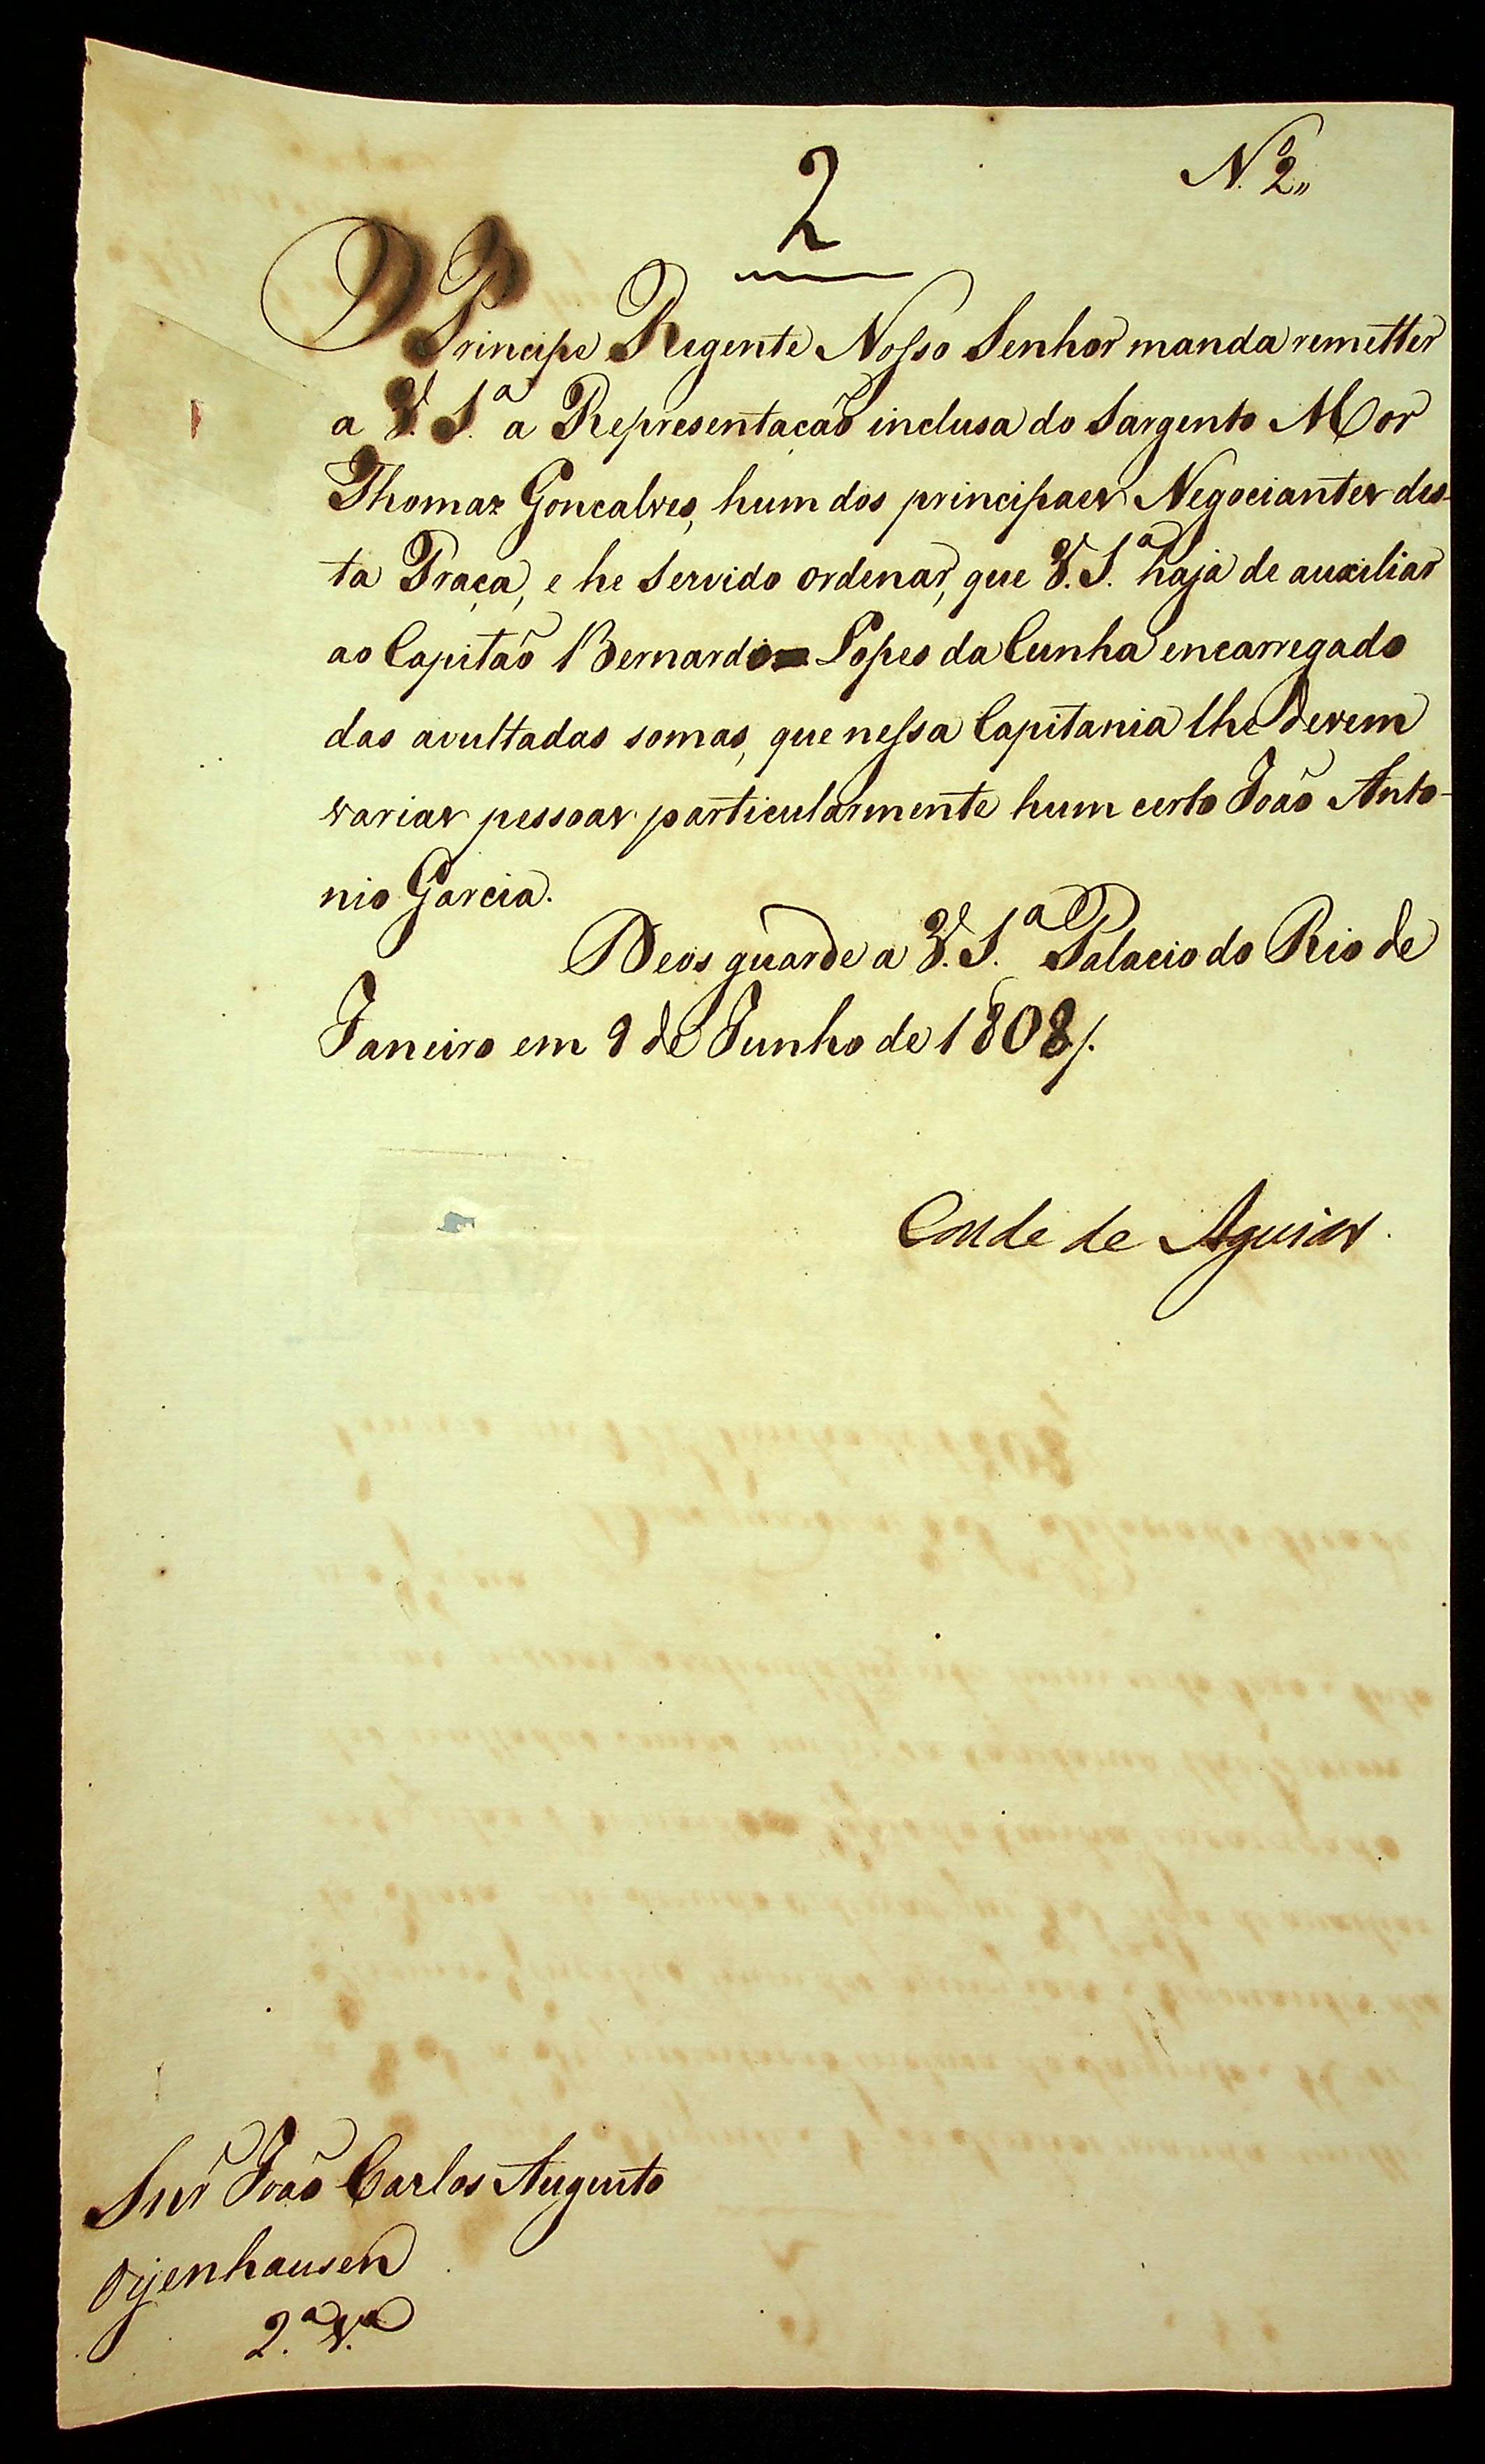 2
N.º 2,,
O Principe Regente Nosso Senhor manda remetter
a V. S.ª a Reprezentação incluza do Sargento Mor
Thomaz Goncalves, hum dos principaes Negociantes des-
ta Praça, e he Servido ordenar, que V. S.ª haja de auxiliar
ao Capitaõ Bernardo Lopes da Cunha encarregado
das avultadas somas, que nessa Capitania lhe devem
varias pessoas particularmente hum certo Joaõ Anto-
nio Garcia.
Deos guarde a V. S.ª Palacio do Rio de
Janeiro em 9 de Junho de 1808/.
Conde de Aguiar.
Snr Joaõ Carlos Augusto
Oyenhausen
2.ª V.ª